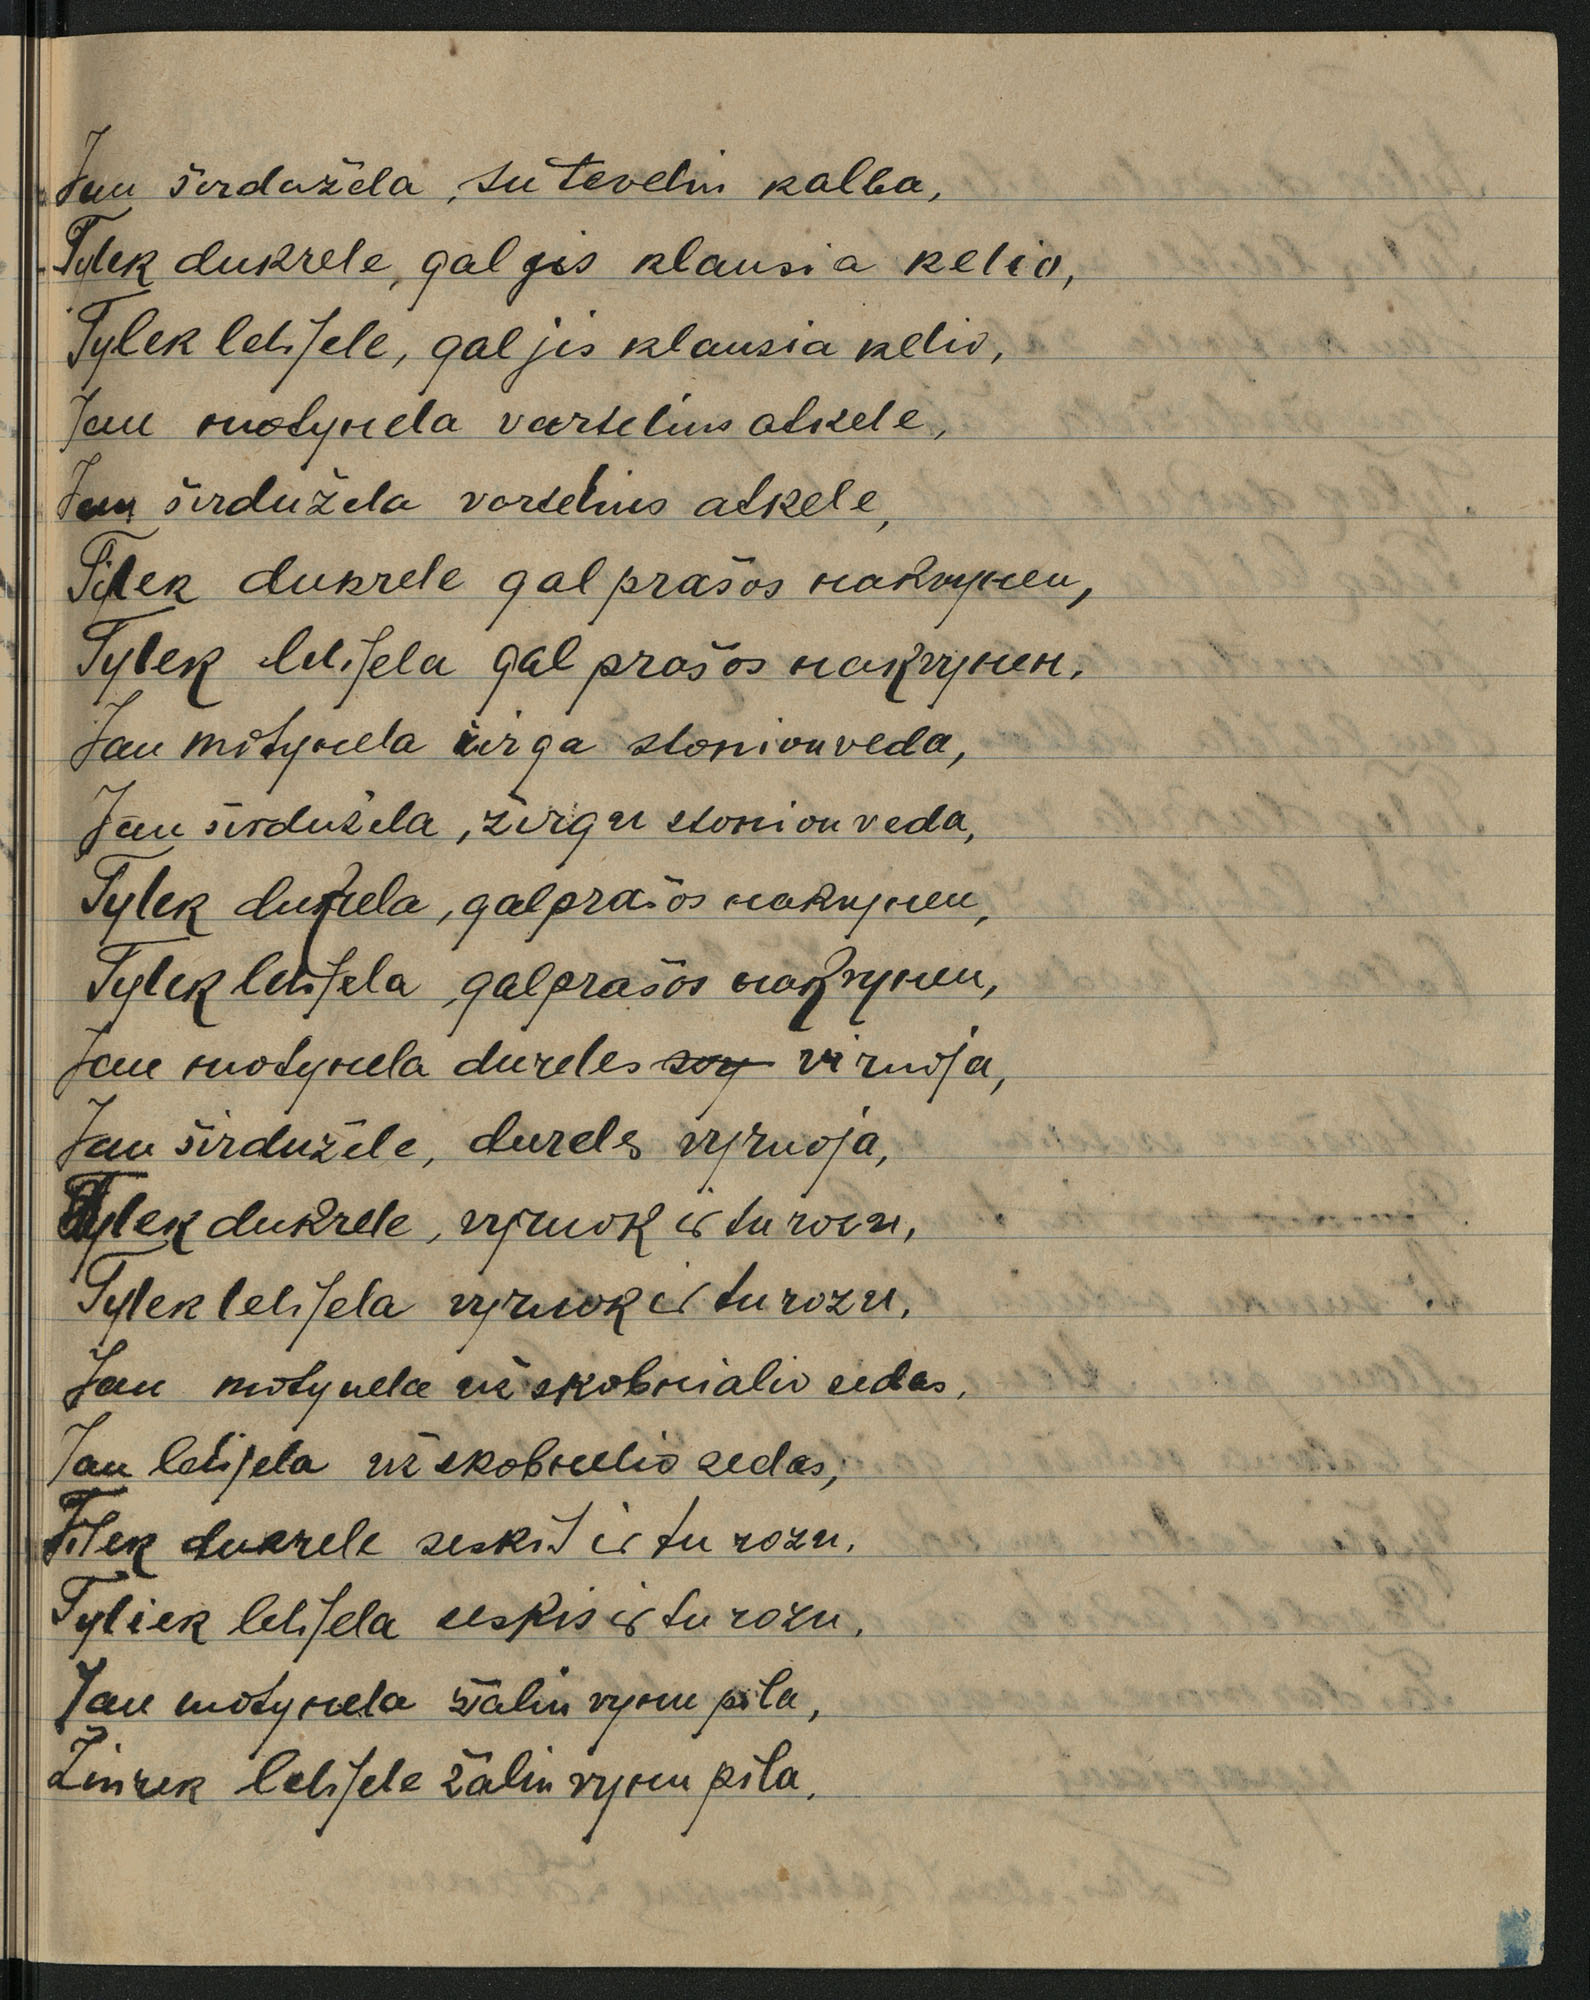 Jau širdužela, su tevelin kalba,
Tylek dukrele, gal jis klausia kelio,
Tylek lelijele, gal jis klausia kelio,
Jau motynela vartelius atkele,
Jau širdužela vortelius atkele,
Tilek dukrele gal prašos nakvynen,
Tylek lelijela gal prašos nakvynen.
Jau motynela žirga stonion veda,
Jau širdužela, žirgu stonion veda,
Tylek dukrela, gal prašos nakvynen,
Tylek lelijela, gal prašos nakvynen,
Jau motynela dureles virnoja,
Jau širdužele, dureles vyrnoja,
Tylek dukrele, vyrnok ir tu rozu,
Tylek lelijela vyrnok ir tu rozu.
Jau motynela už skobnialio sedas,
Jau lelijela už skobnelio sedas,
Tilek dukrele seskis ir tu rozu.
Tyliek lelijela seskis ir tu rozu.
Jau motynela žalin vynu pila,
lelijele žalin vynu pila.